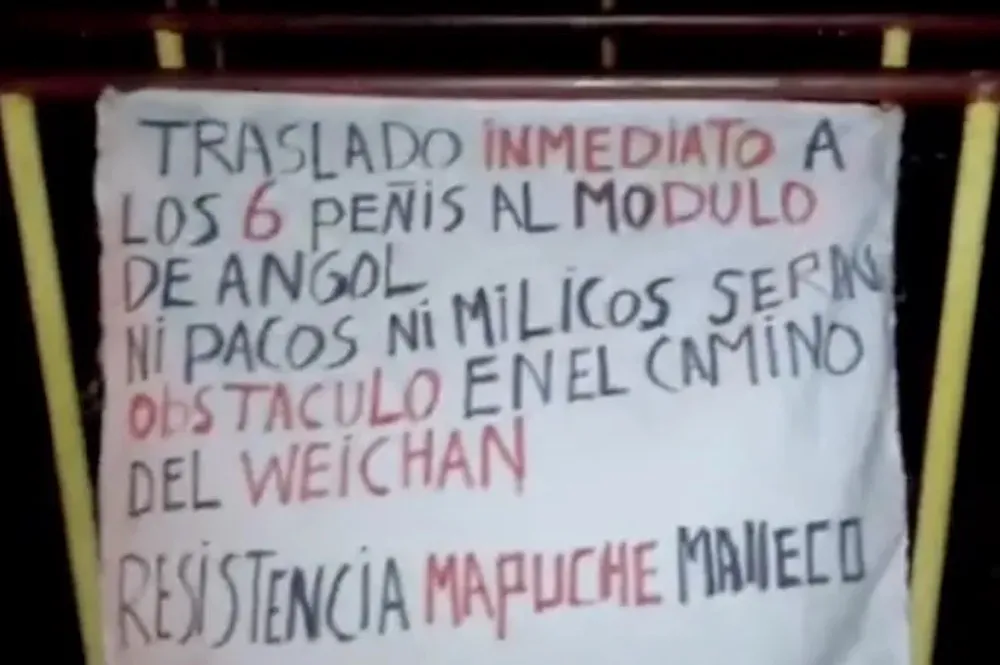 TRASLADO INMEDIATO A
LOS 6 PEÑIS AL MODULO
DE ANGOL
NI PACOS NI MILICOS SERAN
ObSTACULO EN EL CAMINO
DEL WEICHAN
RESISTENCIA MAPUCHE MALLECO